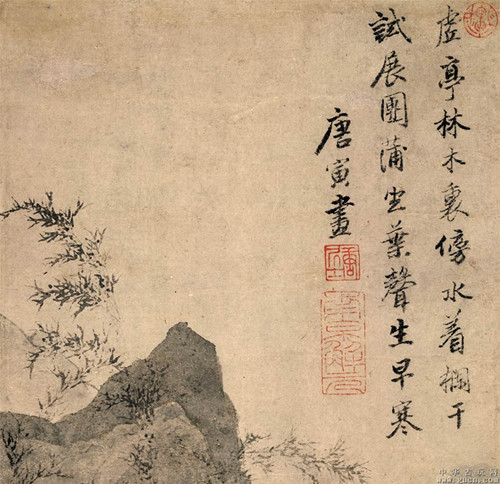 虚亭林木裏傍水着欄干
試展團蒲坐葉聲生早寒
唐寅畫
中华古玩网
www.gucn.com